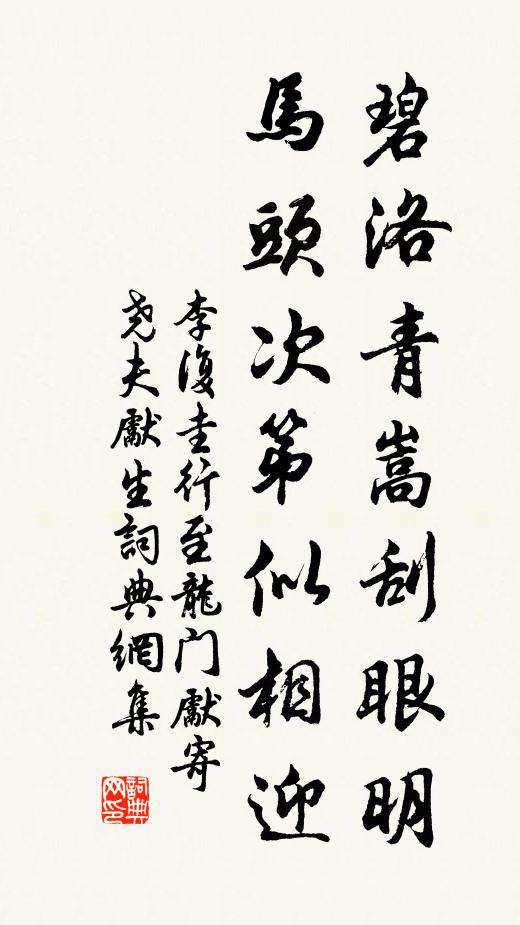 碧洛青嵩刮眼明
馬頭次第似相迎
李復圭行至龍门獻寄
尧夫獻生詞典網集
詞典
网印